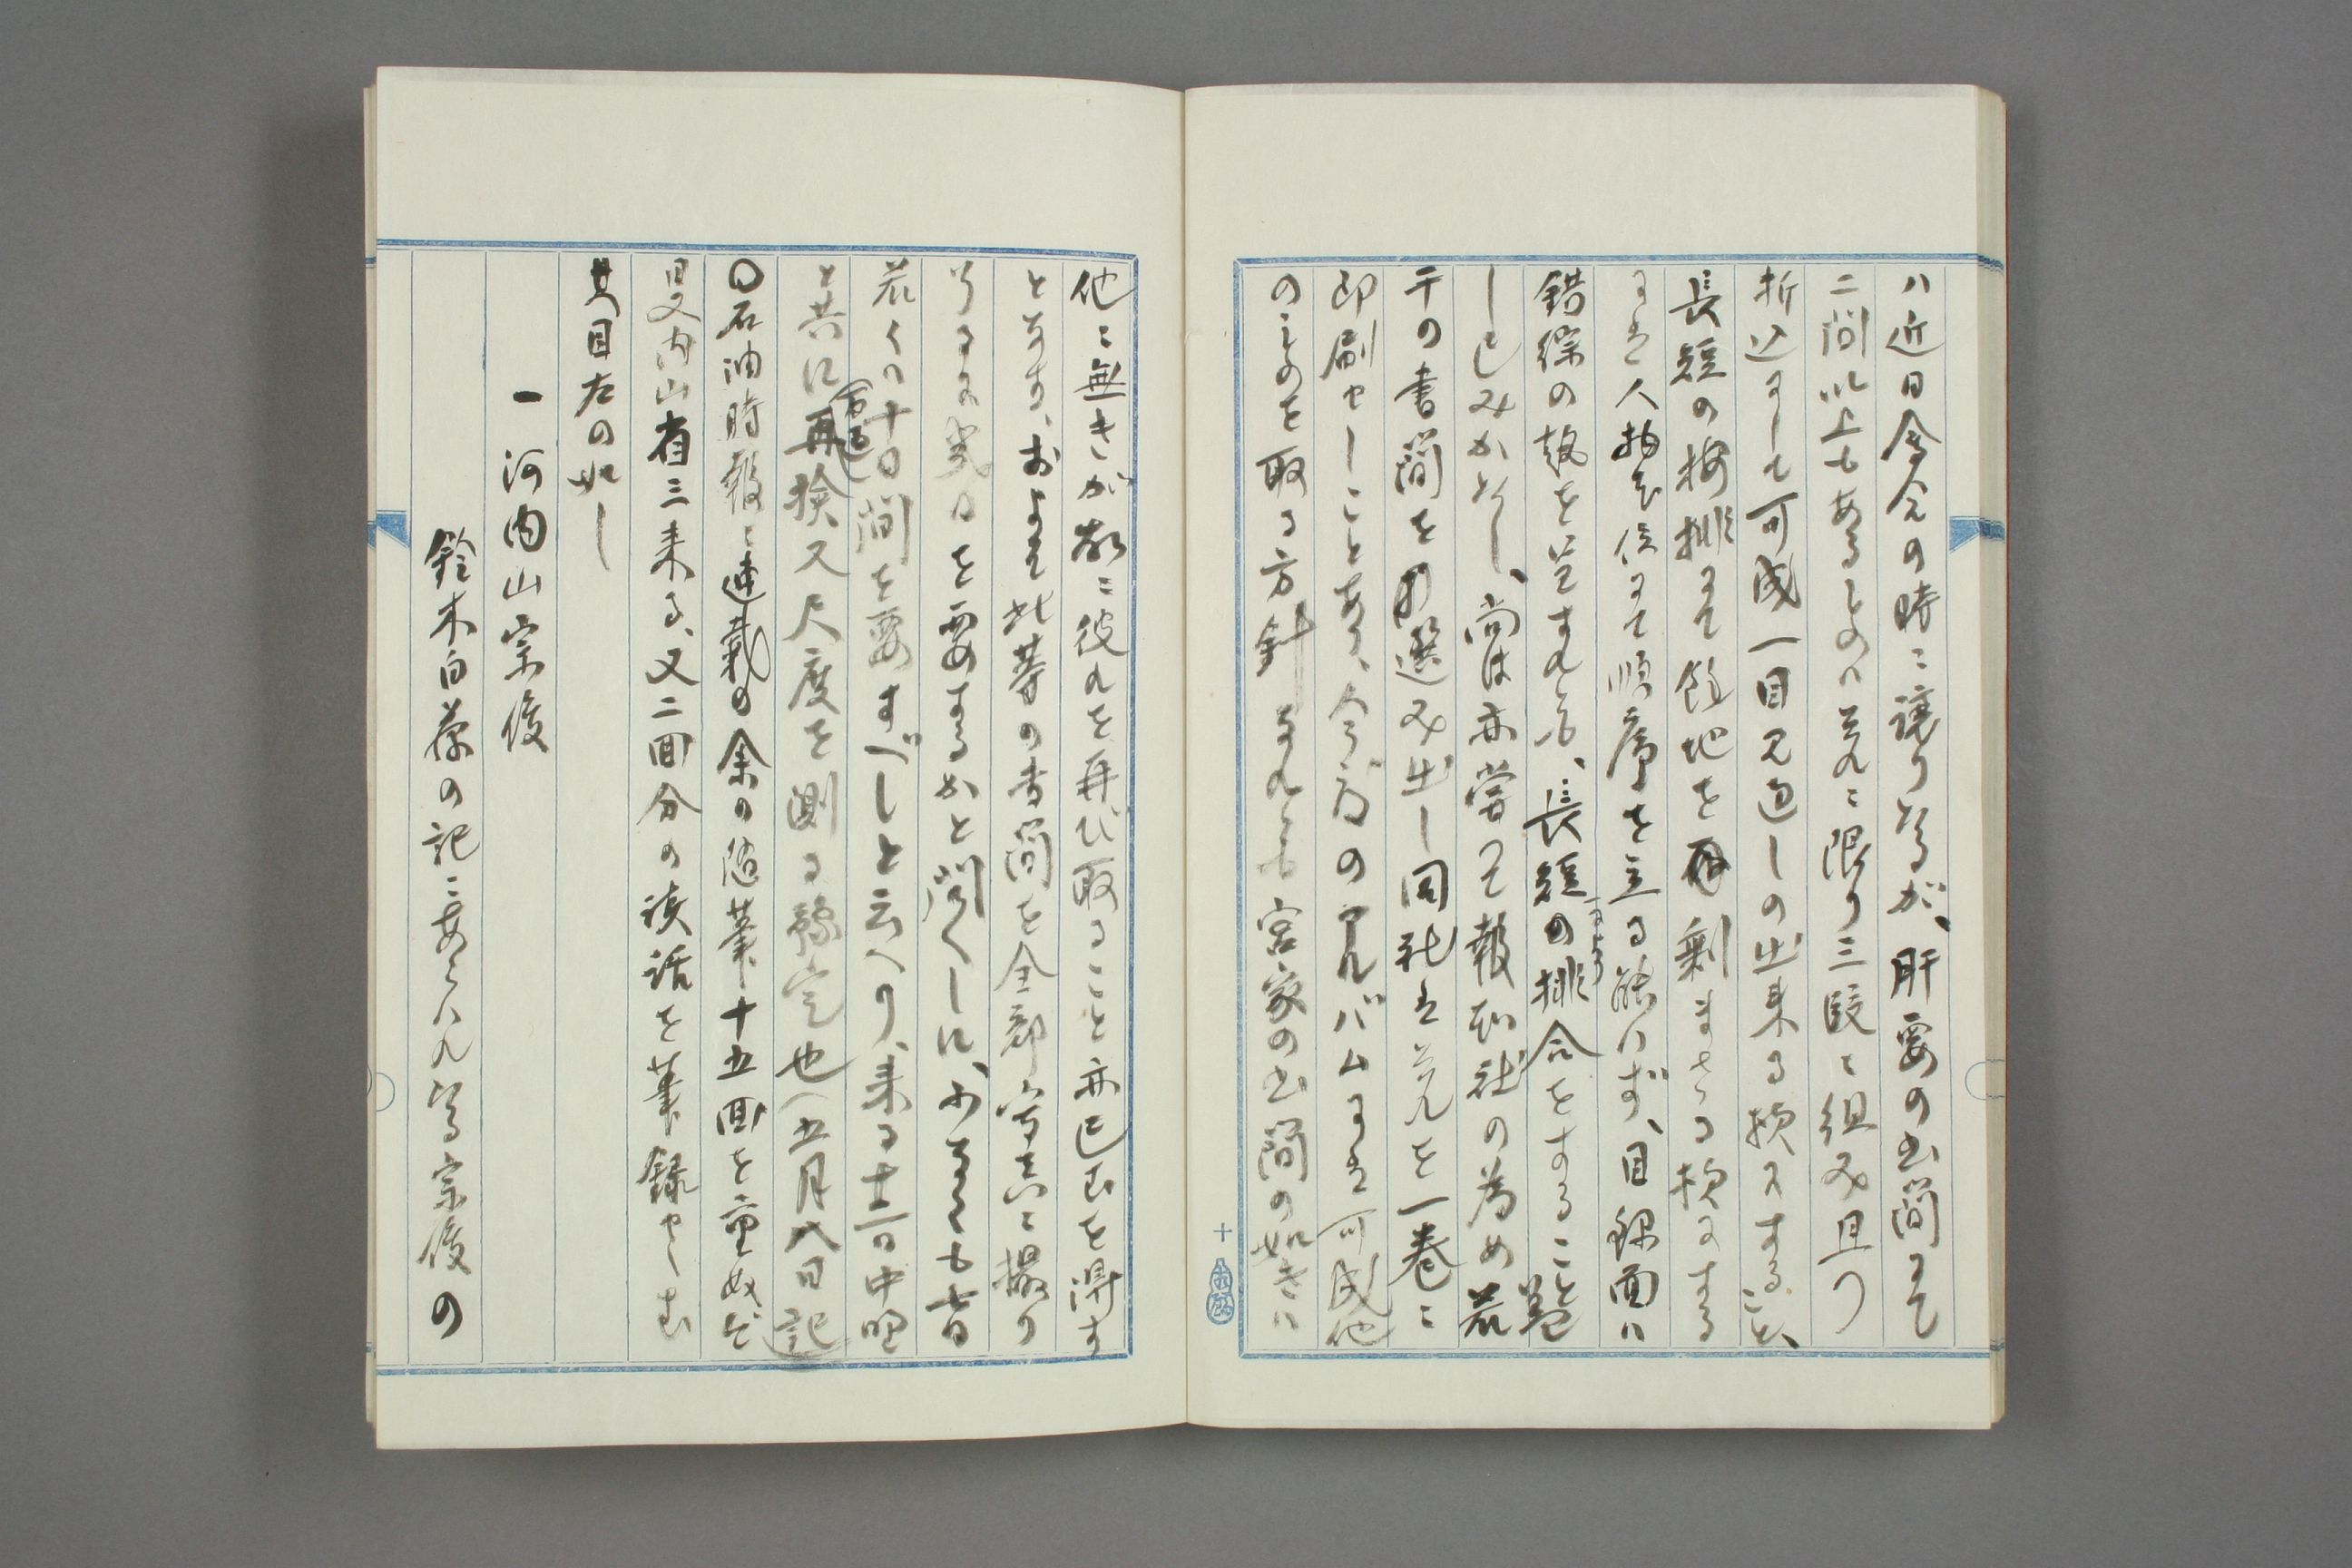 ハ近日会合の時ニ譲りたるが、肝要の書簡にて
二間以上もあるものハ之れニ限り三段ニ組み且つ
折込にしても可成一目见通しの出来る様にすること、
長短の按排にて餘地を剰まさる様にする
には人物年位にて順序を立る能ハず、目録面ハ
錯綜の観を呈すれども、長短の排合をすること
しも止みがたし、尚ほ亦嘗つて報知社の為め若
干の書簡を選み出し同社は之れを一巻ニ
印刷せしことあり、今度のアルバムには可成他
のものを取る方針なれども宮家の書簡の如きハ
十
他ニ無きが故ニ彼れを再び取ること亦已むを得す
となす、およそ此等の書簡を全部写真ニ撮り
了るに幾日を要するかと問くしに、少なくも七日
若くハ十日間を要すべしと云へり、来る十二日中呼
と共に再検又尺度を測る豫定也（五月八日記）
〇石油時報ニ連載の余の随筆十五回を重ぬぞ
曼内山省三来る、又二回分の談話を筆録せしむ
其目左の如し
一 河内山宗俊
鈴木白藤の記ニあらハれたる宗俊の